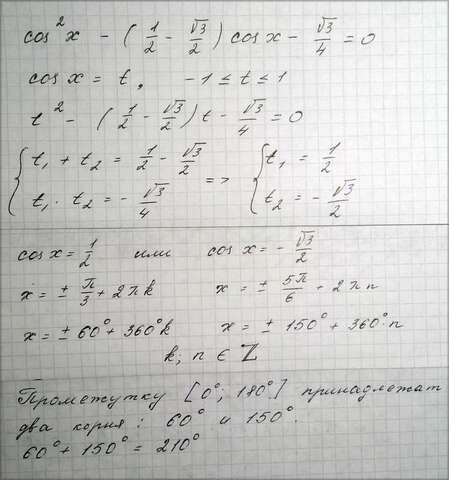 cos²x - (1/2 - √3/2) cos x - √3/4 = 0
cos x = t, -1 ≤ t ≤ 1
t² - (1/2 - √3/2) t - √3/4 = 0
{ t₁ + t₂ = 1/2 - √3/2 => { t₁ = 1/2
t₁ · t₂ = - √3/4 t₂ = - √3/2
cos x = 1/2 или cos x = - √3/2
x = ± π/3 + 2πk x = ± 5π/6 + 2πn
x = ± 60° + 360°k x = ± 150° + 360°·n
k; n ∈ Z
Промежутку [0°; 180°] принадлежат
два корня: 60° и 150°.
60° + 150° = 210°